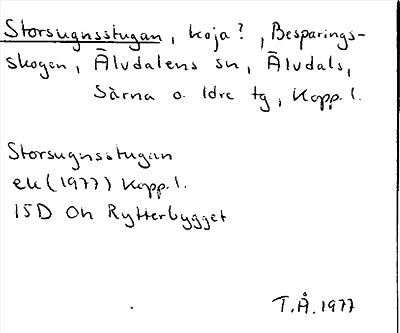 Storsugnsstugan, koja?, Besparings-
skogen, Älvdalens sn, Älvdals,
Särna o. Idre tg, Kopp. l.
Storsugnsstugan
ek (1977) Kopp. l.
15D Oh Rytterbygget
T.Å. 1977